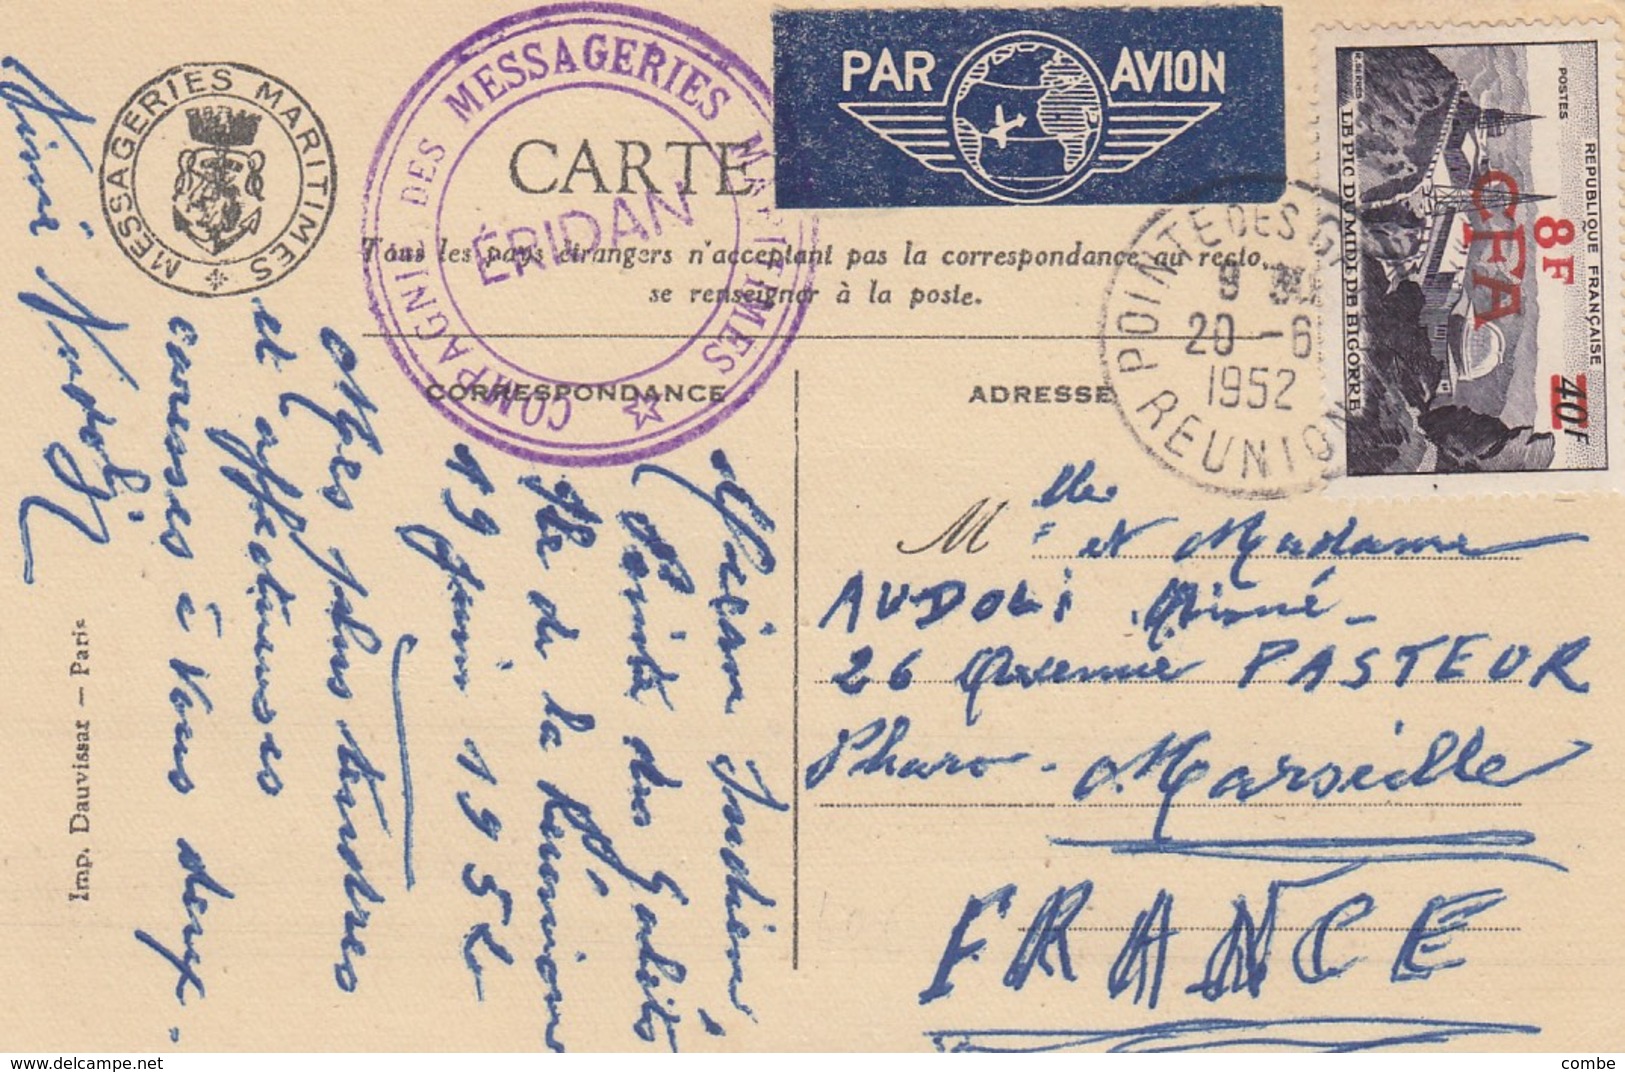 MESSAGERIES MARITIMES
COMPAGNIE DES MESSAGERIES MARITIMES
ÉRIDAN
PAR AVION
CARTE
Tous les pays étrangers n'acceptant pas la correspondance au recto,
se renseigner à la poste.
CORRESPONDANCE
ADRESSE
POINTE DES G
9 30
20 -6
1952
REUNION
REPUBLIQUE FRANÇAISE
POSTES
LE PIC DU MIDI DE BIGORRE
8F
CFA
40F
Océan Indien
Pointe des Galets
Ile de la Réunion
19 Juin 1952
Mes plus tendres
et affectueuses
caresses à vous deux.
Aimé Audoli
M lle et Madame
AUDOLI Aimé
26 Avenue PASTEUR
Pharo - Marseille
FRANCE
Imp. Dauvissat — Paris
combe